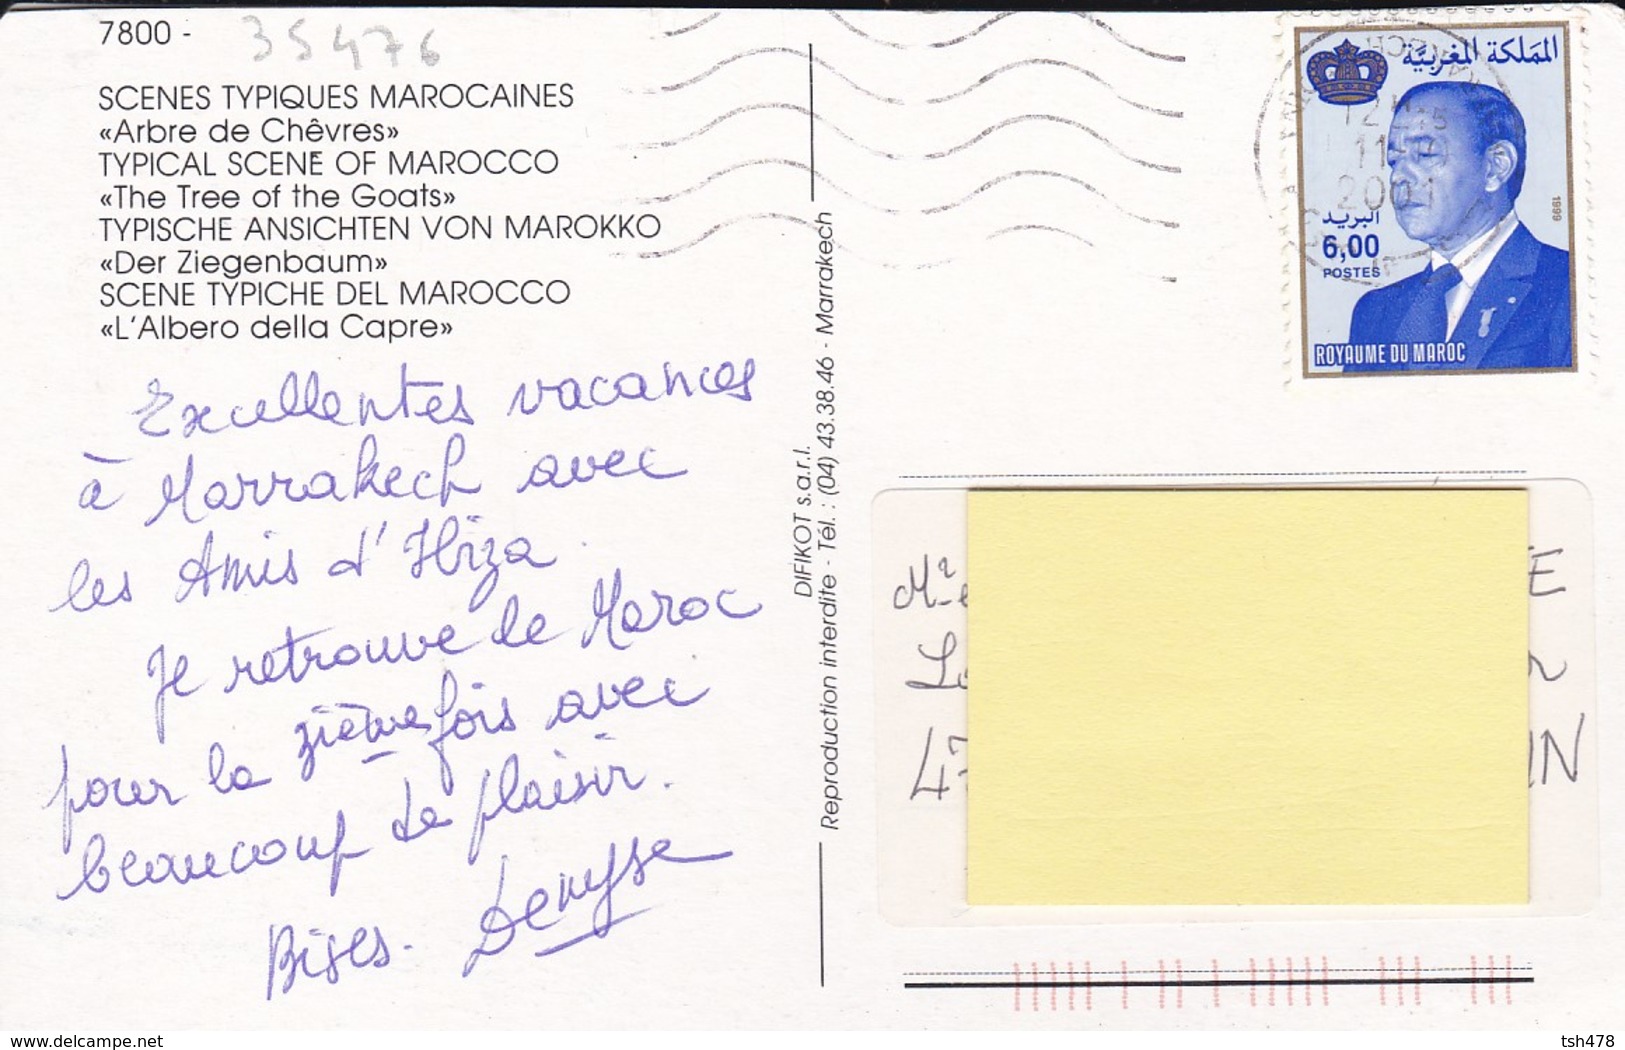 7800 - 35476
SCENES TYPIQUES MAROCAINES
«Arbre de Chêvres»
TYPICAL SCENE OF MAROCCO
«The Tree of the Goats»
TYPISCHE ANSICHTEN VON MAROKKO
«Der Ziegenbaum»
SCENE TYPICHE DEL MAROCCO
«L'Albero della Capre»
Excellentes vacances
à Marrakech avec
les Amis d'Ibiza.
Je retrouve le Maroc
pour la zième fois avec
beaucoup de plaisir.
Bises. Denyse
DIFIKOT s.a.r.l.
Reproduction interdite - Tél. : (04) 43.38.46 - Marrakech
المملكة المغربية
11
2001
1999
البريد
6,00
POSTES
ROYAUME DU MAROC
E
47
IN
delcampe.net
tsh478